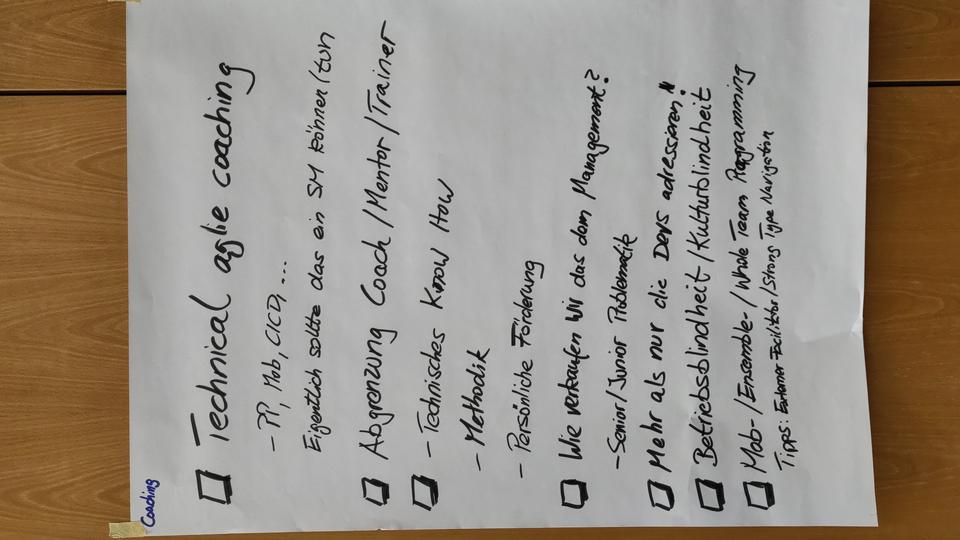 Coaching
Technical aglie coaching
- PP, Mob, CICD, ...
Eigentlich sollte das ein SM können/tun
Abgrenzung Coach/Mentor/Trainer
- Technisches Know How
- Methodik
- Persönliche Förderung
Wie verkaufen wir das dem Management?
- Senior/Junior Problematik
Mehr als nur die Devs adressieren"!
Betriebsblindheit/Kulturblindheit
Mob-/Ensemble-/Whole Team Programming
Tipps: Externer Facilitator/Strong Type Navigation